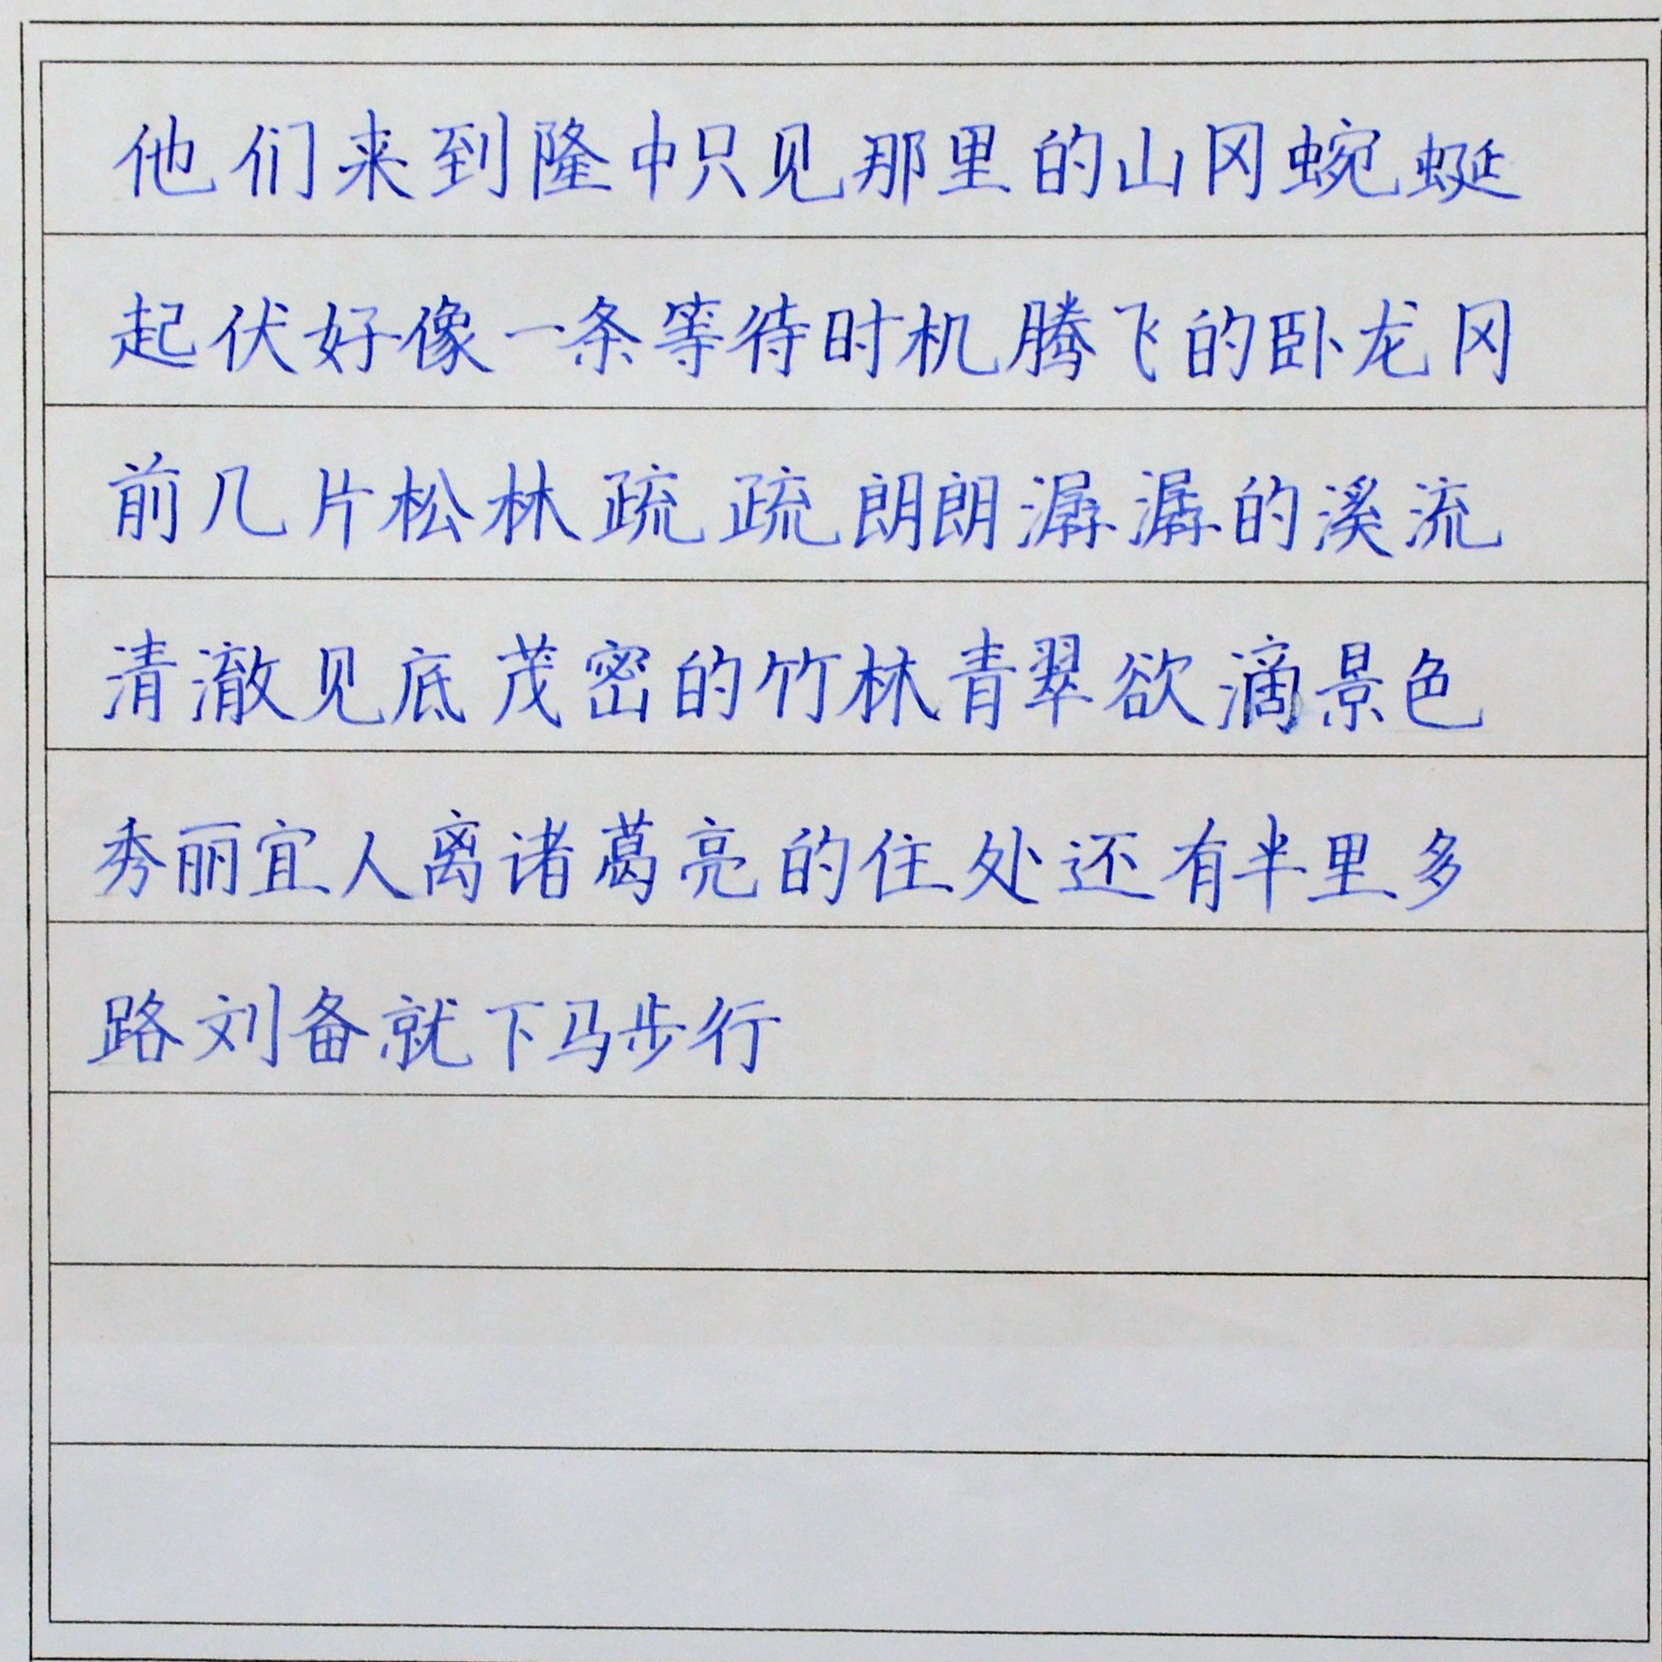 他们来到隆中只见那里的山冈蜿蜒
起伏好像一条等待时机腾飞的卧龙冈
前几片松林疏疏朗朗潺潺的溪流
清澈见底茂密的竹林青翠欲滴景色
秀丽宜人离诸葛亮的住处还有半里多
路刘备就下马步行